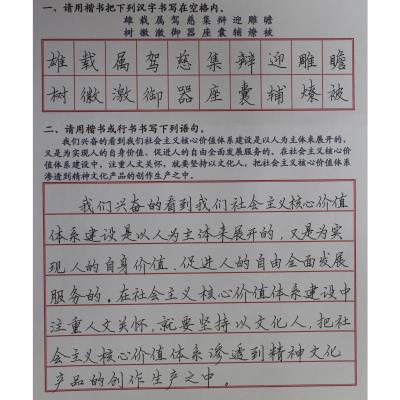 一、请用楷书把下列汉字书写在空格内。
雄 载 属 驾 慈 集 辩 迎 雕 瞻
树 徽 激 御 器 座 囊 辅 燎 被
雄 载 属 驾 慈 集 辩 迎 雕 瞻
树 徽 激 御 器 座 囊 辅 燎 被
二、请用楷书或行书书写下列语句。
我们兴奋的看到我们社会主义核心价值体系建设是以人为主体来展开的，
又是为实现人的自身价值，促进人的自由全面发展服务的。在社会主义核心价
值体系建设中，注重人文关怀，就要坚持以文化人，把社会主义核心价值体系
渗透到精神文化产品的创作生产之中。
我们兴奋的看到我们社会主义核心价值
体系建设是以人为主体来展开的，又是为实
现人的自身价值，促进人的自由全面发展
服务的。在社会主义核心价值体系建设中
注重人文关怀，就要坚持以文化人，把社
会主义核心价值体系渗透到精神文化
产品的创作生产之中。